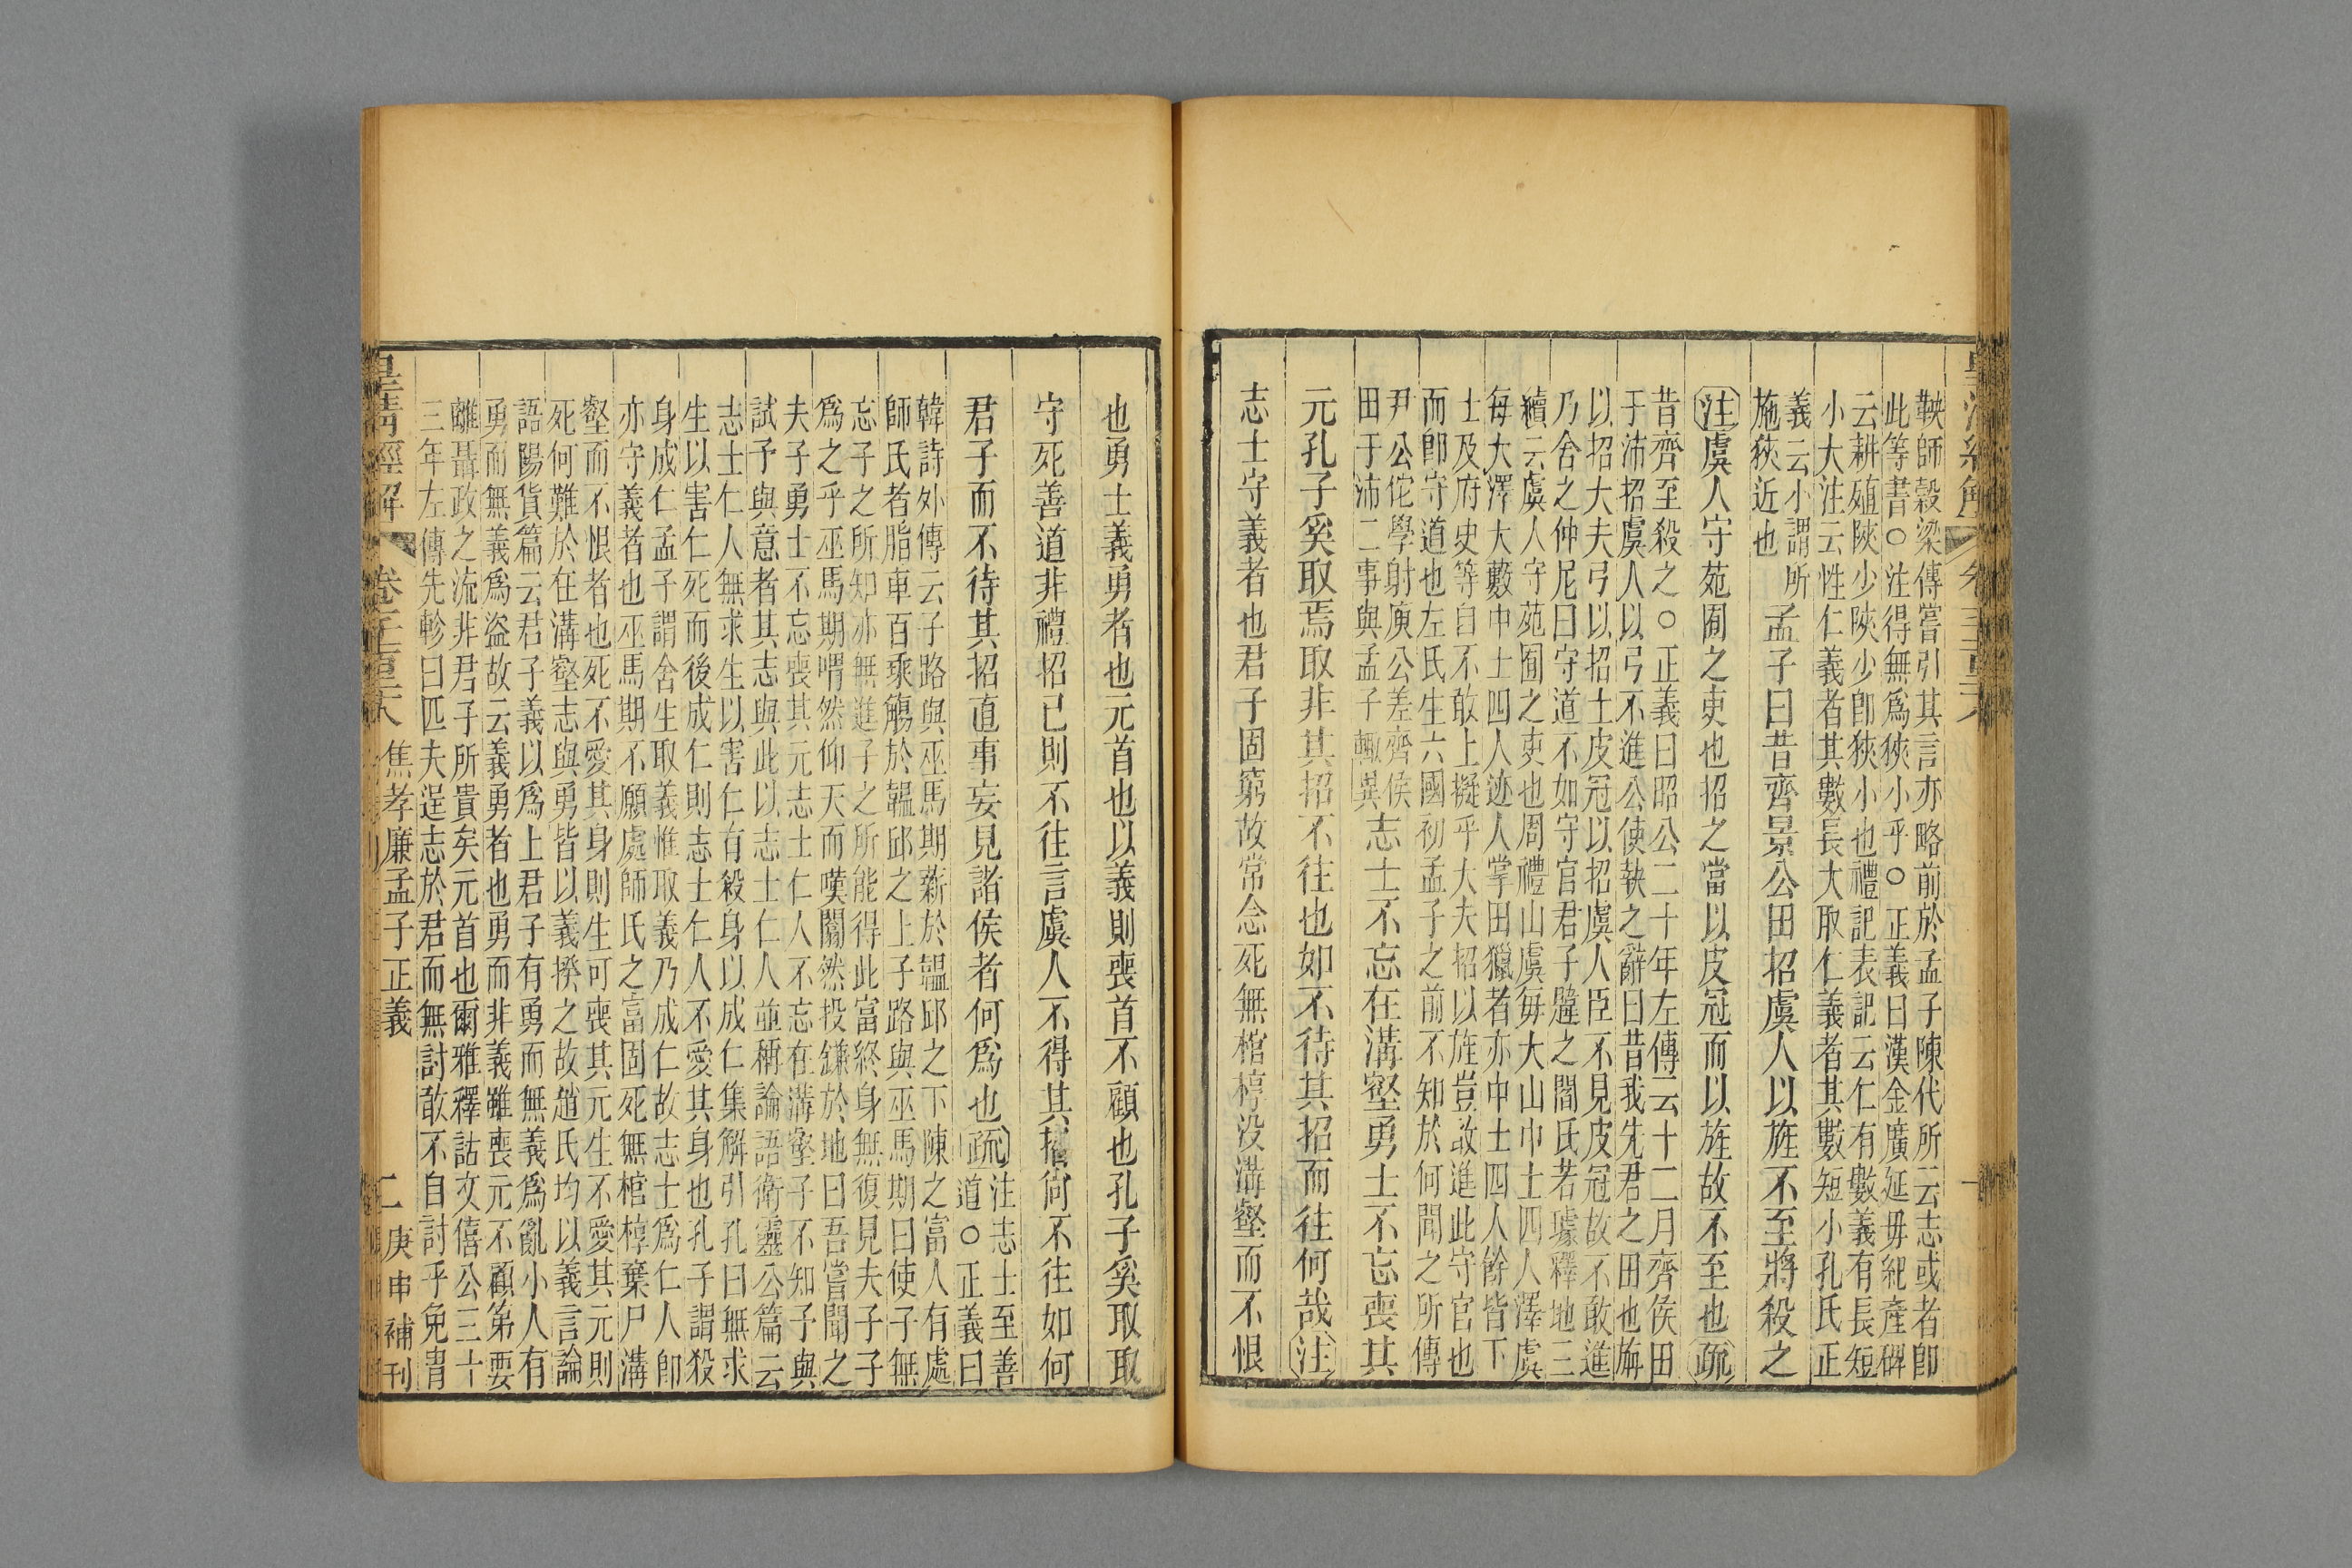 鞅師穀梁傳嘗引其言亦略前於孟子陳代所云志或者卽
此等書○注得無爲狹小乎○正義曰漢金廣延毋紀產碑
云耕殖陝少陝少卽狹小也禮記表記云仁有數義有長短
小大注云性仁義者其數長大取仁義者其數短小孔氏正
義云小謂所
施狹近也
孟子曰昔齊景公田招虞人以旌不至將殺之
注虞人守苑囿之吏也招之當以皮冠而以旌故不至也疏
昔齊至殺之○正義曰昭公二十年左傳云十二月齊侯田
于沛招虞人以弓不進公使執之辭曰昔我先君之田也旃
以招大夫弓以招士皮冠以招虞人臣不見皮冠故不敢進
乃舍之仲尼曰守道不如守官君子韙之閻氏若璩釋地三
續云虞人守苑囿之吏也周禮山虞每大山中士四人澤虞
每大澤大藪中士四人迹人掌田獵者亦中士四人餘皆下
士及府史等自不敢上擬乎大夫招以旌豈敢進此守官也
而卽守道也左氏生六國初孟子之前不知於何聞之所傳
尹公佗學射庾公差齊侯
田于沛二事與孟子輒異
志士不忘在溝壑勇士不忘喪其
元孔子奚取焉取非其招不往也如不待其招而往何哉注
志士守義者也君子固窮故常念死無棺椁没溝壑而不恨
也勇士義勇者也元首也以義則喪首不顧也孔子奚取取
守死善道非禮招己則不往言虞人不得其招尙不往如何
君子而不待其招直事妄見諸侯者何爲也疏
注志士至善
道○正義曰
韓詩外傳云子路與巫馬期薪於韞邱之下陳之富人有處
師氏者脂車百乘觴於韞邱之上子路與巫馬期曰使子無
忘子之所知亦無進子之所能得此富終身無復見夫子子
爲之乎巫馬期喟然仰天而嘆闟然投鎌於地曰吾嘗聞之
夫子勇士不忘喪其元志士仁人不忘在溝壑子不知予與
試予與意者其志與此以志士仁人並稱論語衛靈公篇云
志士仁人無求生以害仁有殺身以成仁集解引孔曰無求
生以害仁死而後成仁則志士仁人不愛其身也孔子謂殺
身成仁孟子謂舍生取義惟取義乃成仁故志士爲仁人卽
亦守義者也巫馬期不願處師氏之富固死無棺椁棄尸溝
壑而不恨者也死不愛其身則生可喪其元生不愛其元則
死何難於在溝壑志與勇皆以義揆之故趙氏均以義言論
語陽貨篇云君子義以爲上君子有勇而無義爲亂小人有
勇而無義爲盜故云義勇者也勇而非義雖喪元不顧第要
離聶政之流非君子所貴矣元首也爾雅釋詁文僖公三十
三年左傳先軫曰匹夫逞志於君而無討敢不自討乎免胄
皇清經解 焦孝廉孟子正義 二 庚申補刊